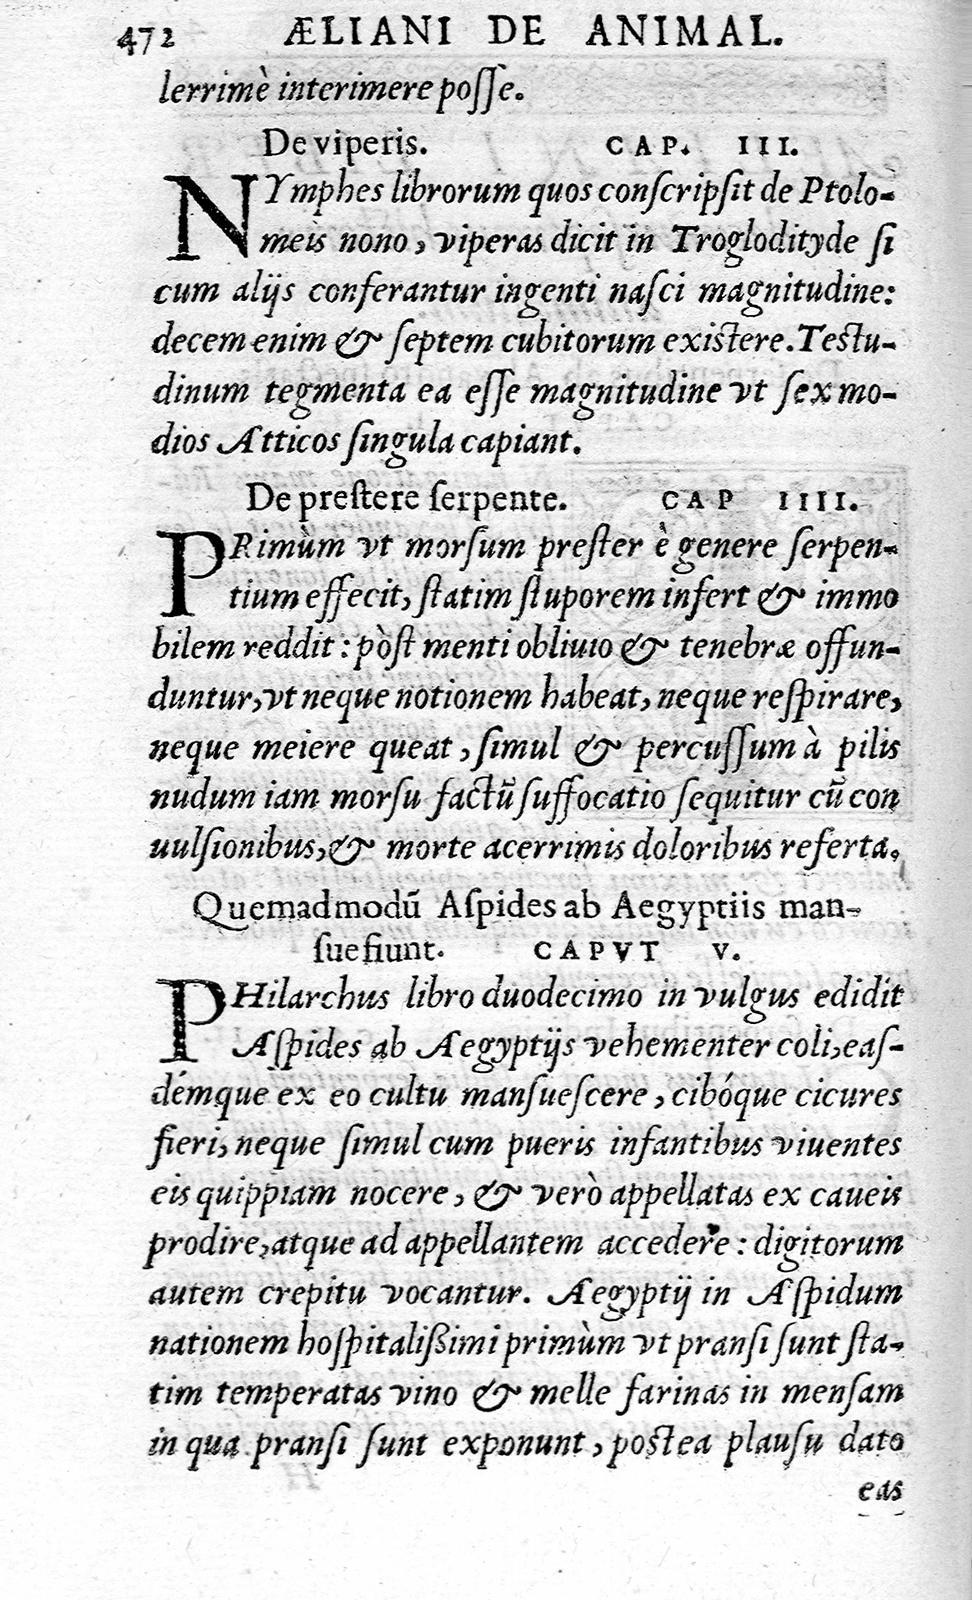 472 ÆLIANI DE ANIMAL.
lerrimè interimere poſſe.
De viperis. CAP. III.
NYmphes librorum quos conſcripſit de Ptolo-
meis nono, viperas dicit in Troglodityde ſi
cum alijs conferantur ingenti naſci magnitudine:
decem enim & ſeptem cubitorum exiſtere. Teſtu-
dinum tegmenta ea eſſe magnitudine vt ſex mo-
dios Atticos ſingula capiant.
De preſtere ſerpente. CAP IIII.
PRimùm vt morſum preſter è genere ſerpen-
tium effecit, ſtatim ſtuporem infert & immo
bilem reddit: pòſt menti obliuio & tenebræ offun-
duntur, vt neque notionem habeat, neque reſpirare,
neque meiere queat, ſimul & percuſſum à pilis
nudum iam morſu factũ ſuffocatio ſequitur cũ con
uulſionibus, & morte acerrimis doloribus referta.
Quemadmodũ Aſpides ab Aegyptiis man-
ſuefiunt. CAPVT V.
PHilarchus libro duodecimo in vulgus edidit
Aſpides ab Aegyptijs vehementer coli, eaſ-
démque ex eo cultu manſueſcere, cibóque cicures
fieri, neque ſimul cum pueris infantibus viuentes
eis quippiam nocere, & verò appellatas ex caueis
prodire, atque ad appellantem accedere: digitorum
autem crepitu vocantur. Aegyptij in Aſpidum
nationem hoſpitalißimi primùm vt pranſi ſunt ſta-
tim temperatas vino & melle farinas in menſam
in qua pranſi ſunt exponunt, poſtea plauſu dato
eas